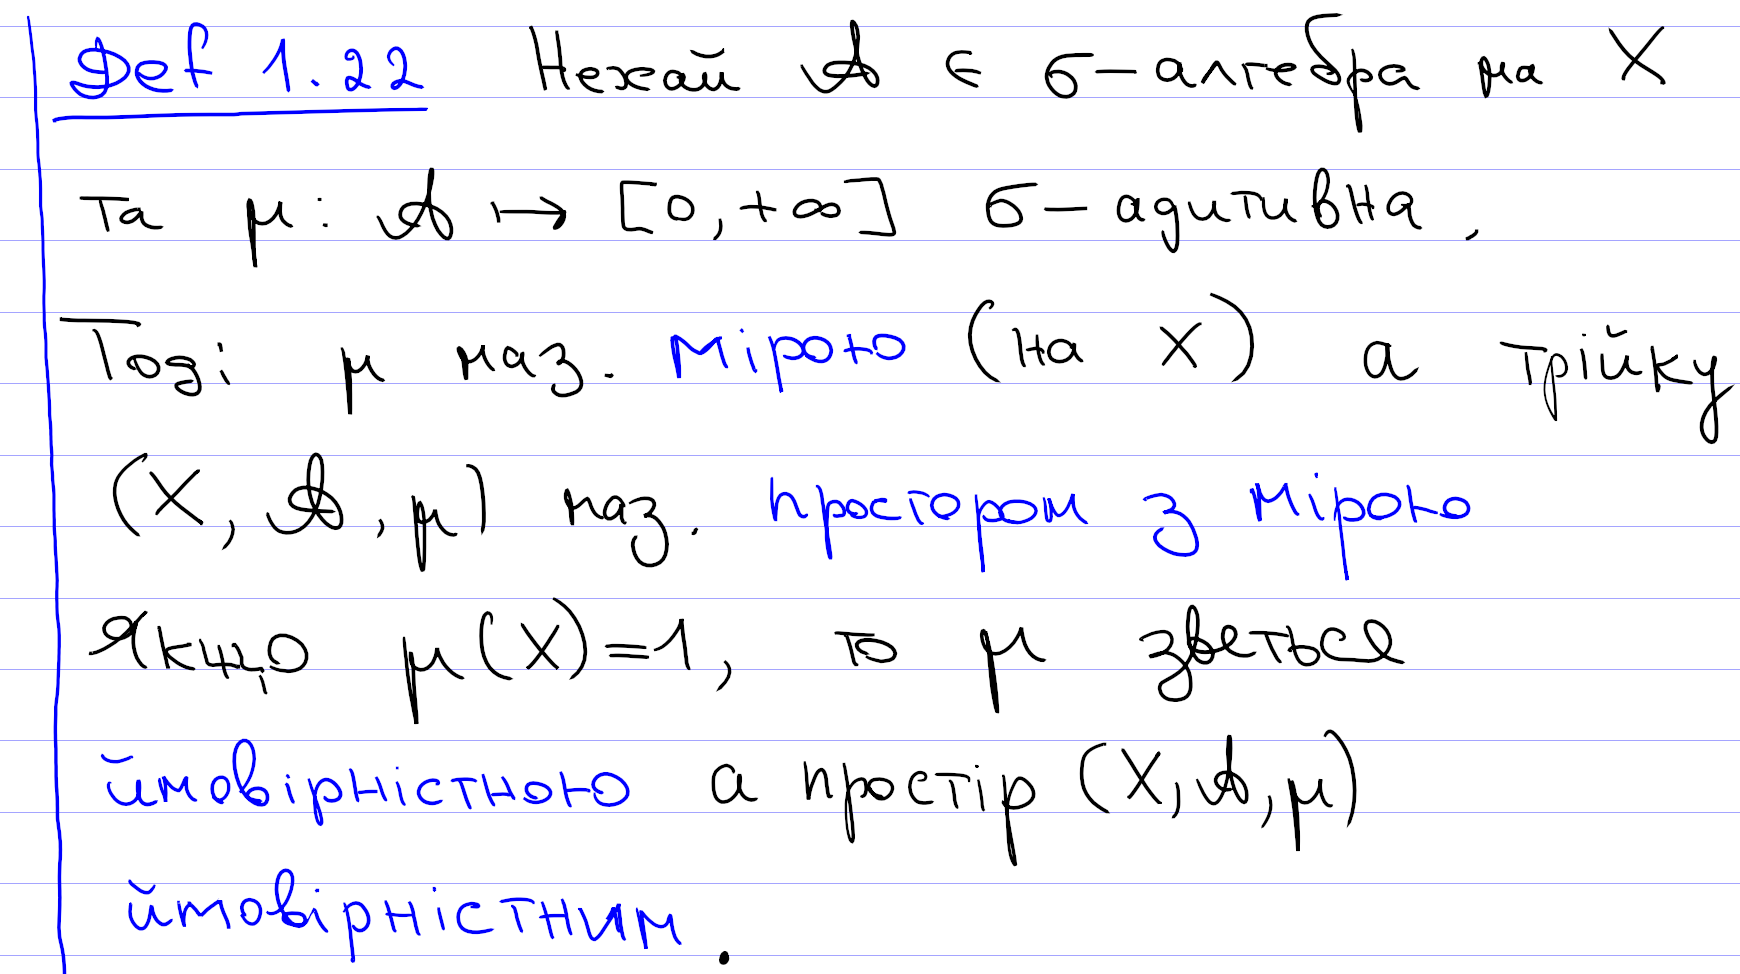 Def 1.22 Нехай 𝒜 є σ-алгебра на X
та μ: 𝒜 ↦ [0,+∞] σ-адитивна,
Тоді μ наз. мірою (на X) а трійку
(X, 𝒜, μ) наз. простором з мірою
Якщо μ(X)=1, то μ зветься
ймовірністною а простір (X,𝒜,μ)
ймовірністним.